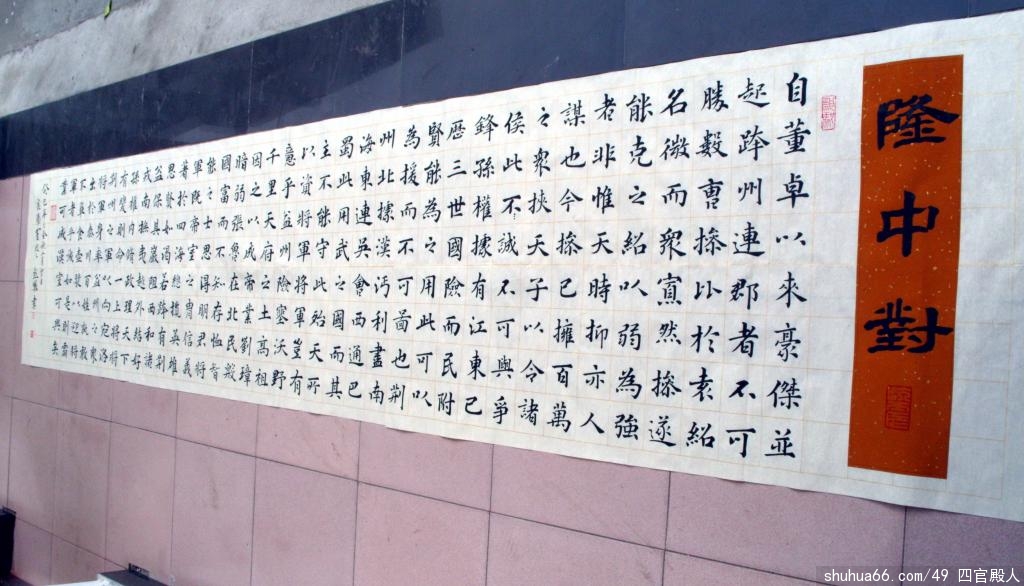 隆中對
自董卓以來豪傑並
起跨州連郡者不可
勝數曹操比於袁紹
名微而衆寡然操遂
能克之紹以弱為強
者非惟天時抑亦人
謀也今操已擁百萬
之衆挾天子以令諸
侯此不誠不可與爭
鋒孫權據有江東已
歷三世國險而民附
賢能為之用此可以
為援而不可圖也荆
州北據漢沔利盡南
海東連吳會西通巴
蜀此用武之國而其
主不能守此殆天所
以資將軍將軍豈有
意乎益州險塞沃野
千里天府之土高祖
因之以成帝業劉璋
暗弱張魯在北民殷
國富而不知存恤智
能之士思得明君將
軍既帝室之冑信義
著於四海總攬英雄
思賢如渴若跨有荆
益保其巖阻西和諸
戎南撫夷越外結好
孫權內修政理天下
有變則命一上將將
荆州之軍以向宛洛
將軍身率益州之衆
出於秦川百姓孰敢
不簞食壺漿以迎將
軍者乎誠如是則霸
業可成漢室可興矣
shuhua66.com/49 四官殿人